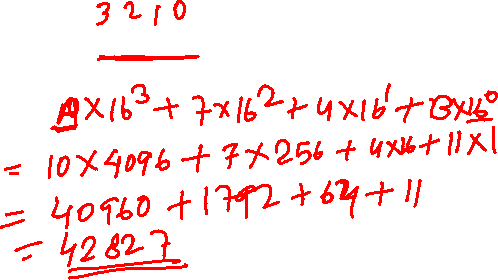 3 2 1 0
A×16³ + 7×16² + 4×16¹ + B×16⁰
= 10×4096 + 7×256 + 4×16 + 11×1
= 40960 + 1792 + 64 + 11
= 42827